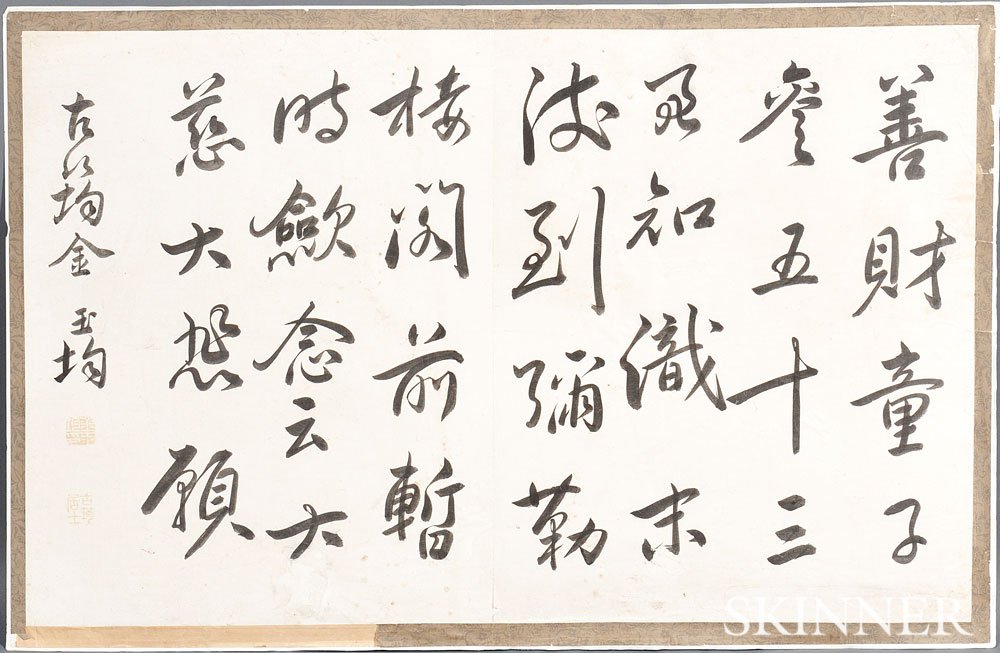 善財童子
參五十三
員知識末
後到彌勒
樓閣前暫
時歛念云大
慈大悲願
古筠金玉均
SKINNER